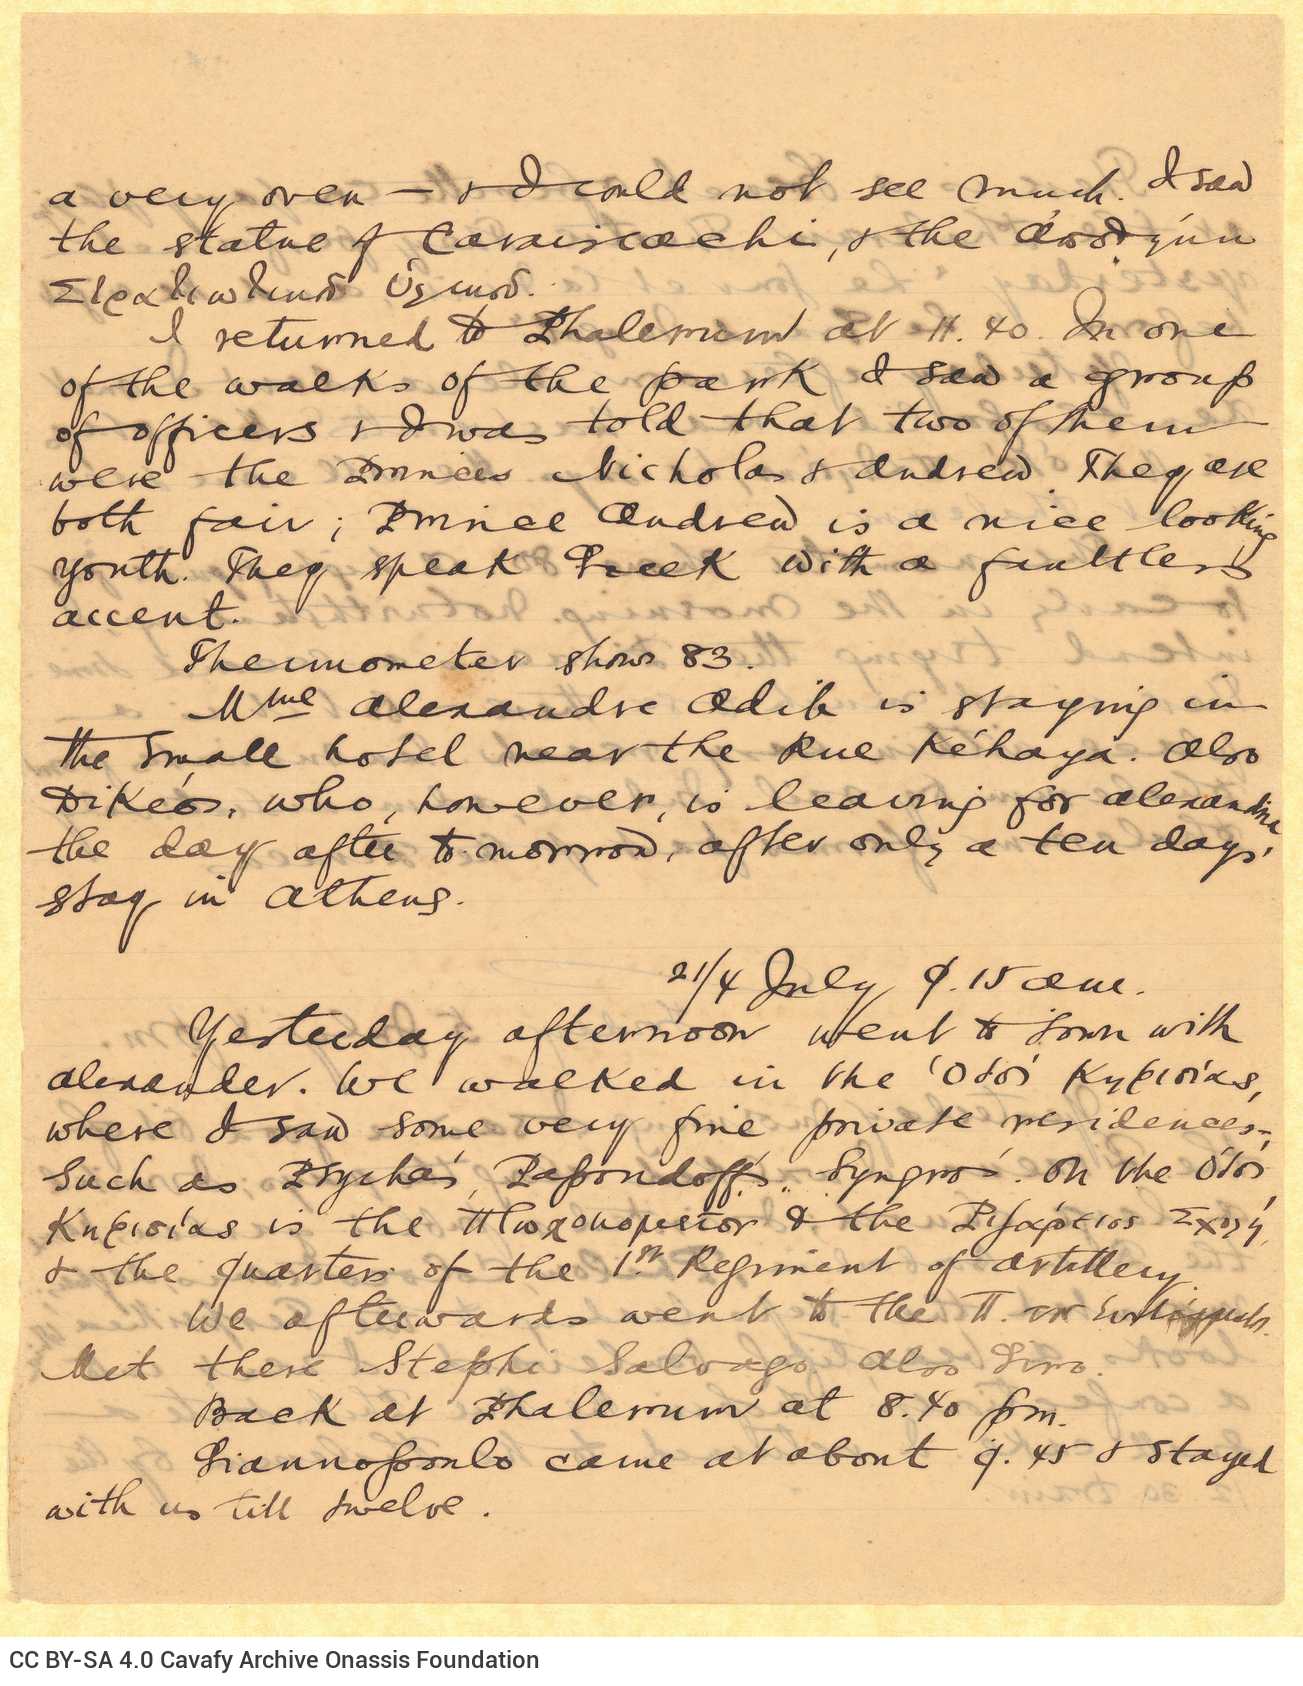 a very oven — & I could not see much. I saw
the statue of Caraiscachi, & the
Στρατιωτικού
I returned to Phalerum at 11.40. In one
of the walks of the park I saw a group
of officers & I was told that two of them
were the Princes Nicholas & Andrew. They are
both fair; Prince Andrew is a nice looking
youth. They speak Greek with a faultless
accent.
Thermometer shows 83.
Mme Alexandre Adib is staying in
the small hotel near the Rue Kéhaya. Also
Dikéos, who, however, is leaving for Alexandria
the day after to-morrow, after only a ten days'
stay in Athens.
21/4 July 9.15 am.
Yesterday afternoon went to town with
Alexander. We walked in the Ὁδός Κηφισίας,
where I saw some very fine private residences,
such as Psycha's, Papoudoff's, Syngros'. On the Ὁδός
Κηφισίας is the Πτωχοκομείον & the Ριζάρειος Σχολή,
& the quarters of the 1st Regiment of Artillery.
We afterwards went to the Π. τον
Met there Stephi Salvago. Also Siro.
Back at Phalerum at 8.40 pm.
Giannopoulo came at about 9.45 & stayed
with us till twelve.
CC BY-SA 4.0 Cavafy Archive Onassis Foundation